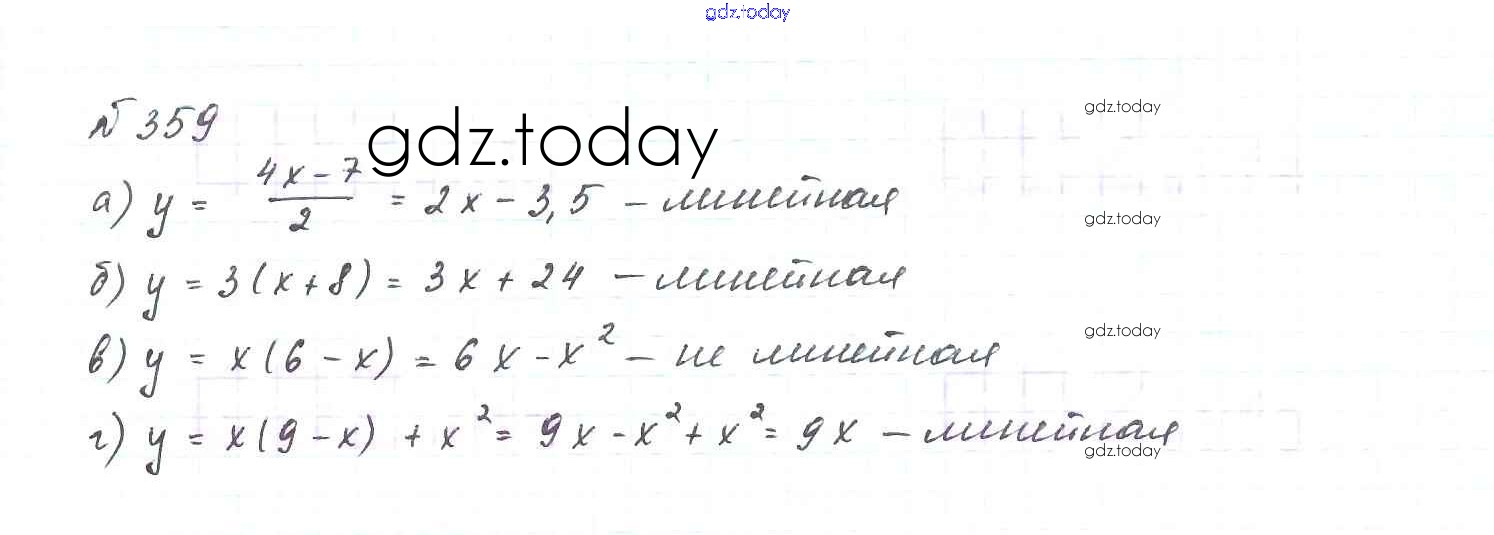 gdz.today
№ 359
gdz.today
gdz.today
а) y = (4x - 7)/2 = 2x - 3,5 - линейная
gdz.today
б) y = 3(x+8) = 3x + 24 - линейная
gdz.today
в) y = x(6 - x) = 6x - x² - не линейная
г) y = x(9 - x) + x² = 9x - x² + x² = 9x - линейная
gdz.today